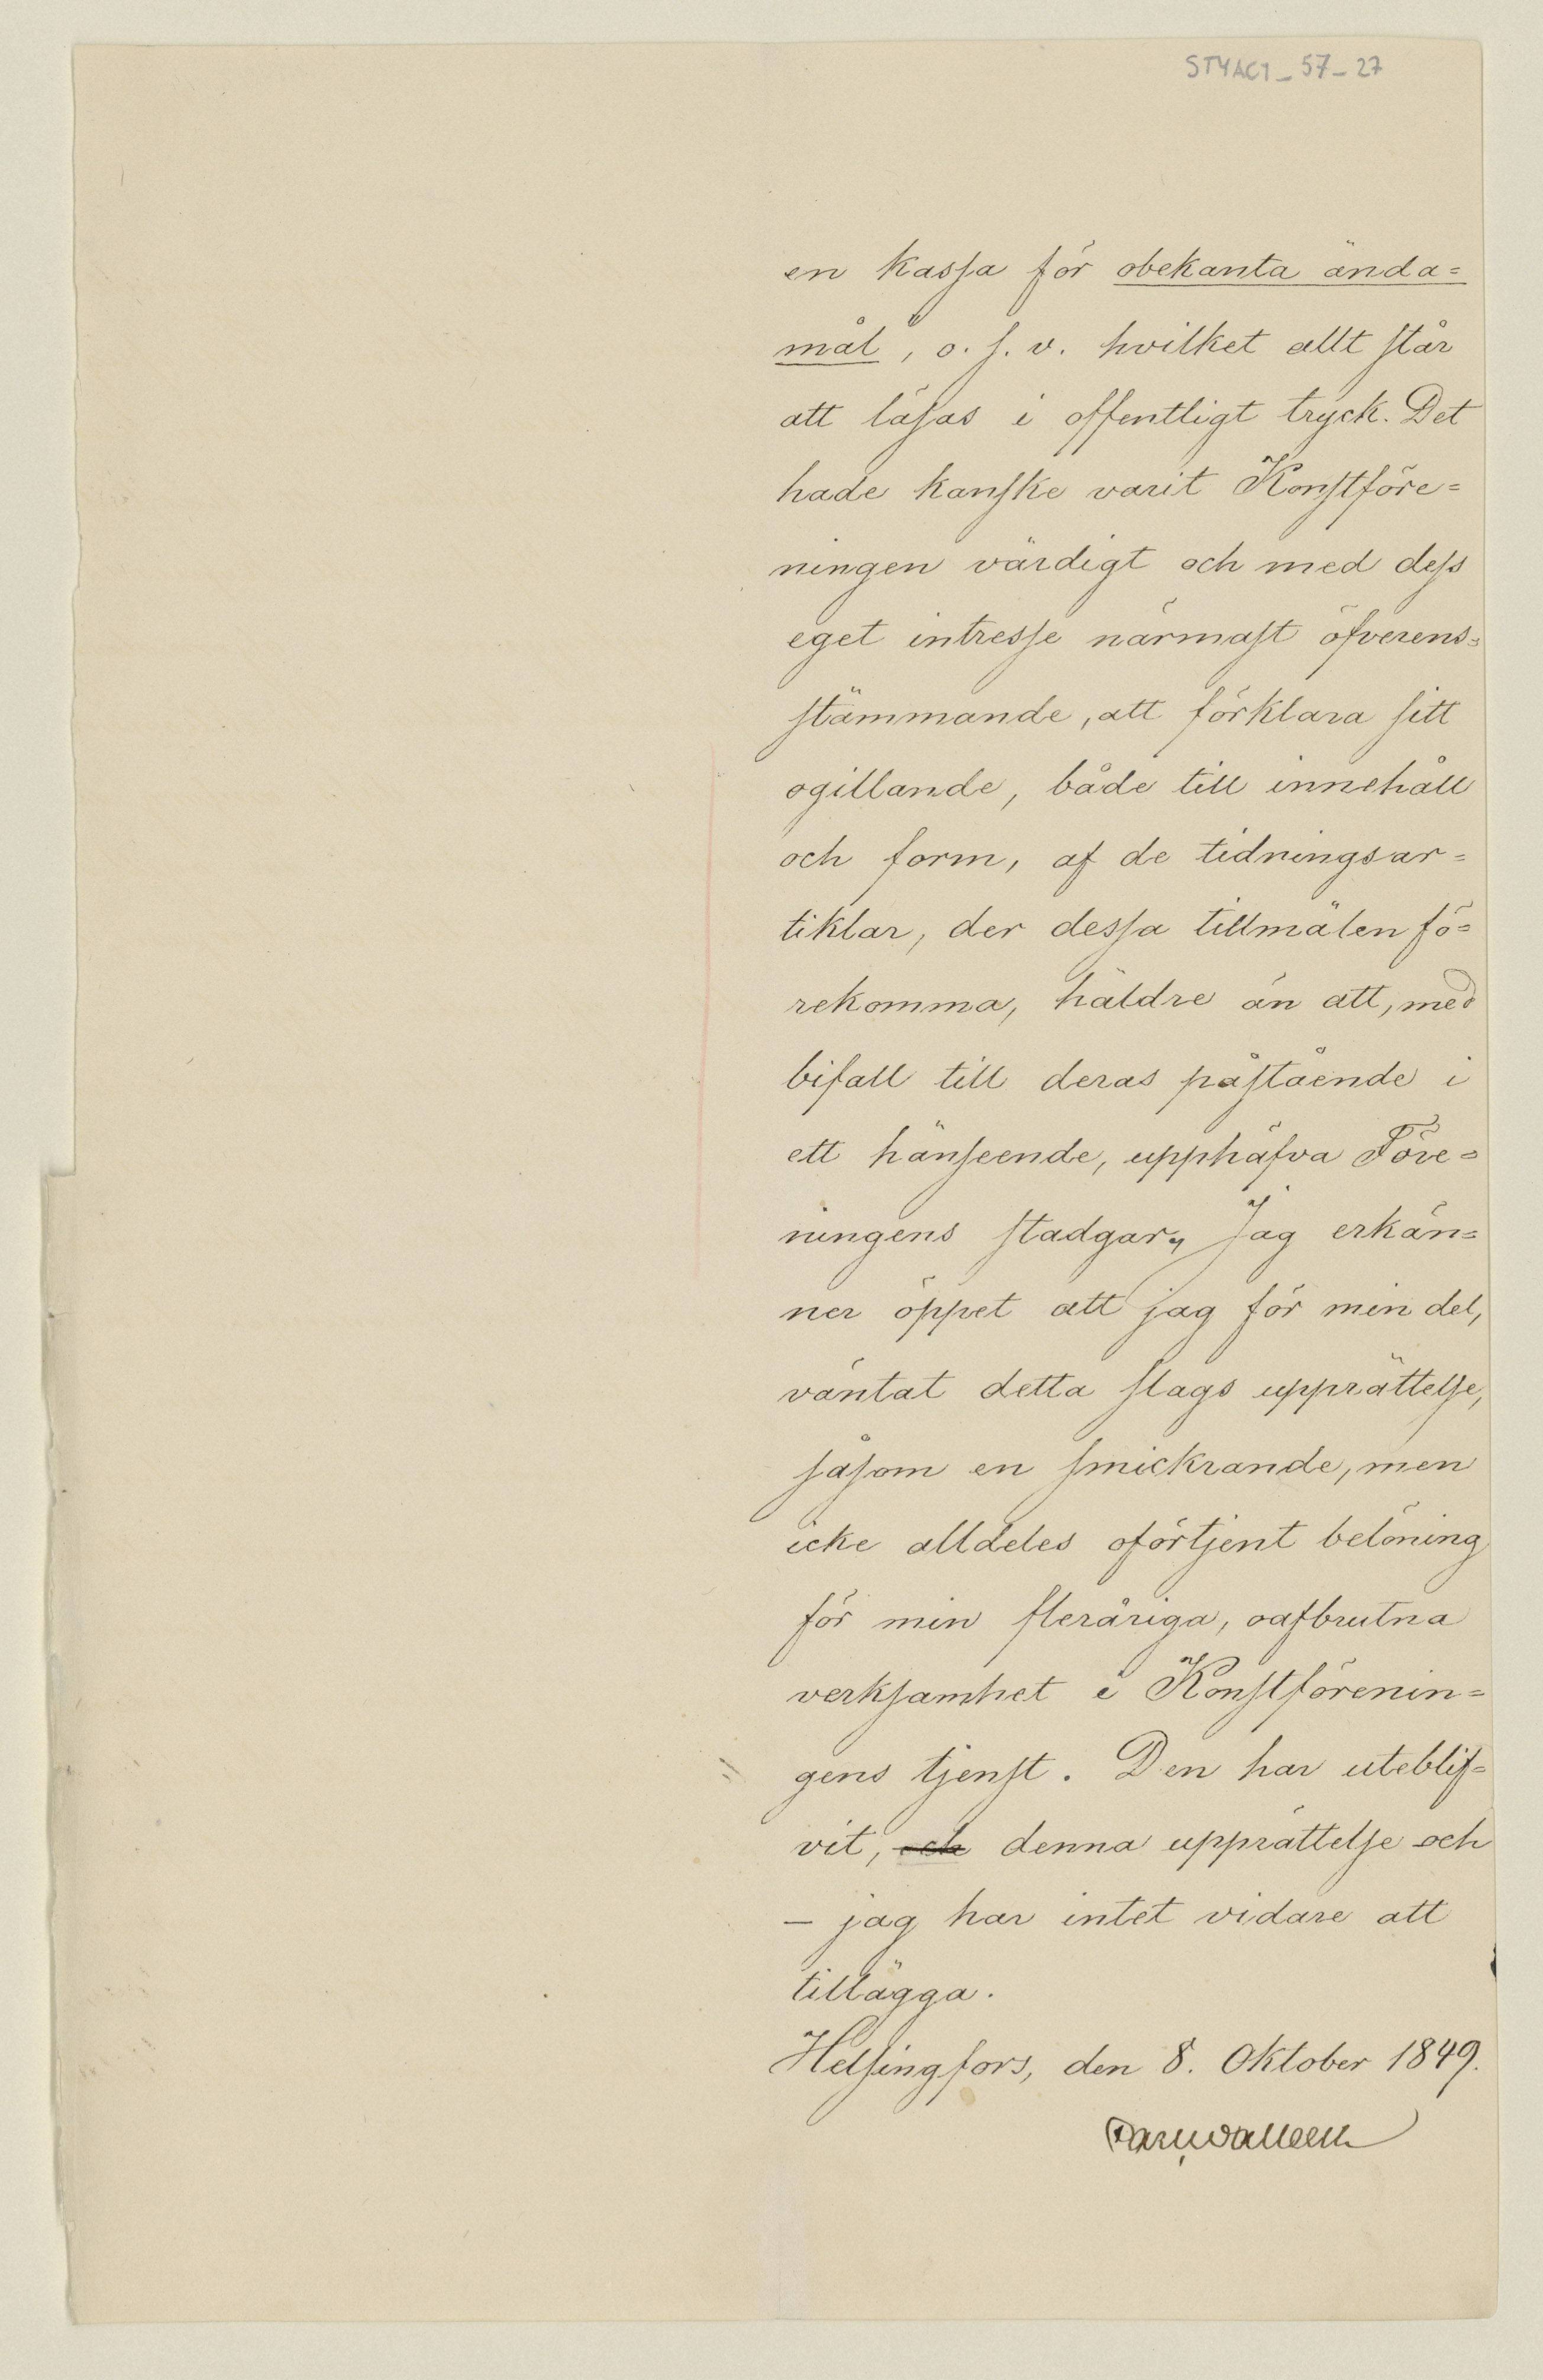 STYACI_57-27
en kassa för obekanta ända=
mål", o. s. v. hvilket allt står
att läsas i offentligt tryck. Det
hade kanske varit Konstföre=
ningen värdigt och med dess
eget intresse närmast öfverens=
stämmande, att förklara sitt
ogillande, både till innehåll
och form, af de tidningsar=
tiklar, der dessa tillmälen fö=
rekomma, häldre än att, med
bifall till deras påstående i
ett hänseende, upphäfva Före=
ningens stadgar. Jag erkän=
ner öppet att jag för min del,
väntat detta slags upprättelse,
såsom en smickrande, men
icke alldeles oförtjent belöning
för min fleråriga, oafbrutna
verksamhet i Konstförenin=
gens tjenst. Den har uteblif=
vit, och denna upprättelse och
– jag har intet vidare att
tillägga.
Helsingfors, den 8. Oktober 1849.